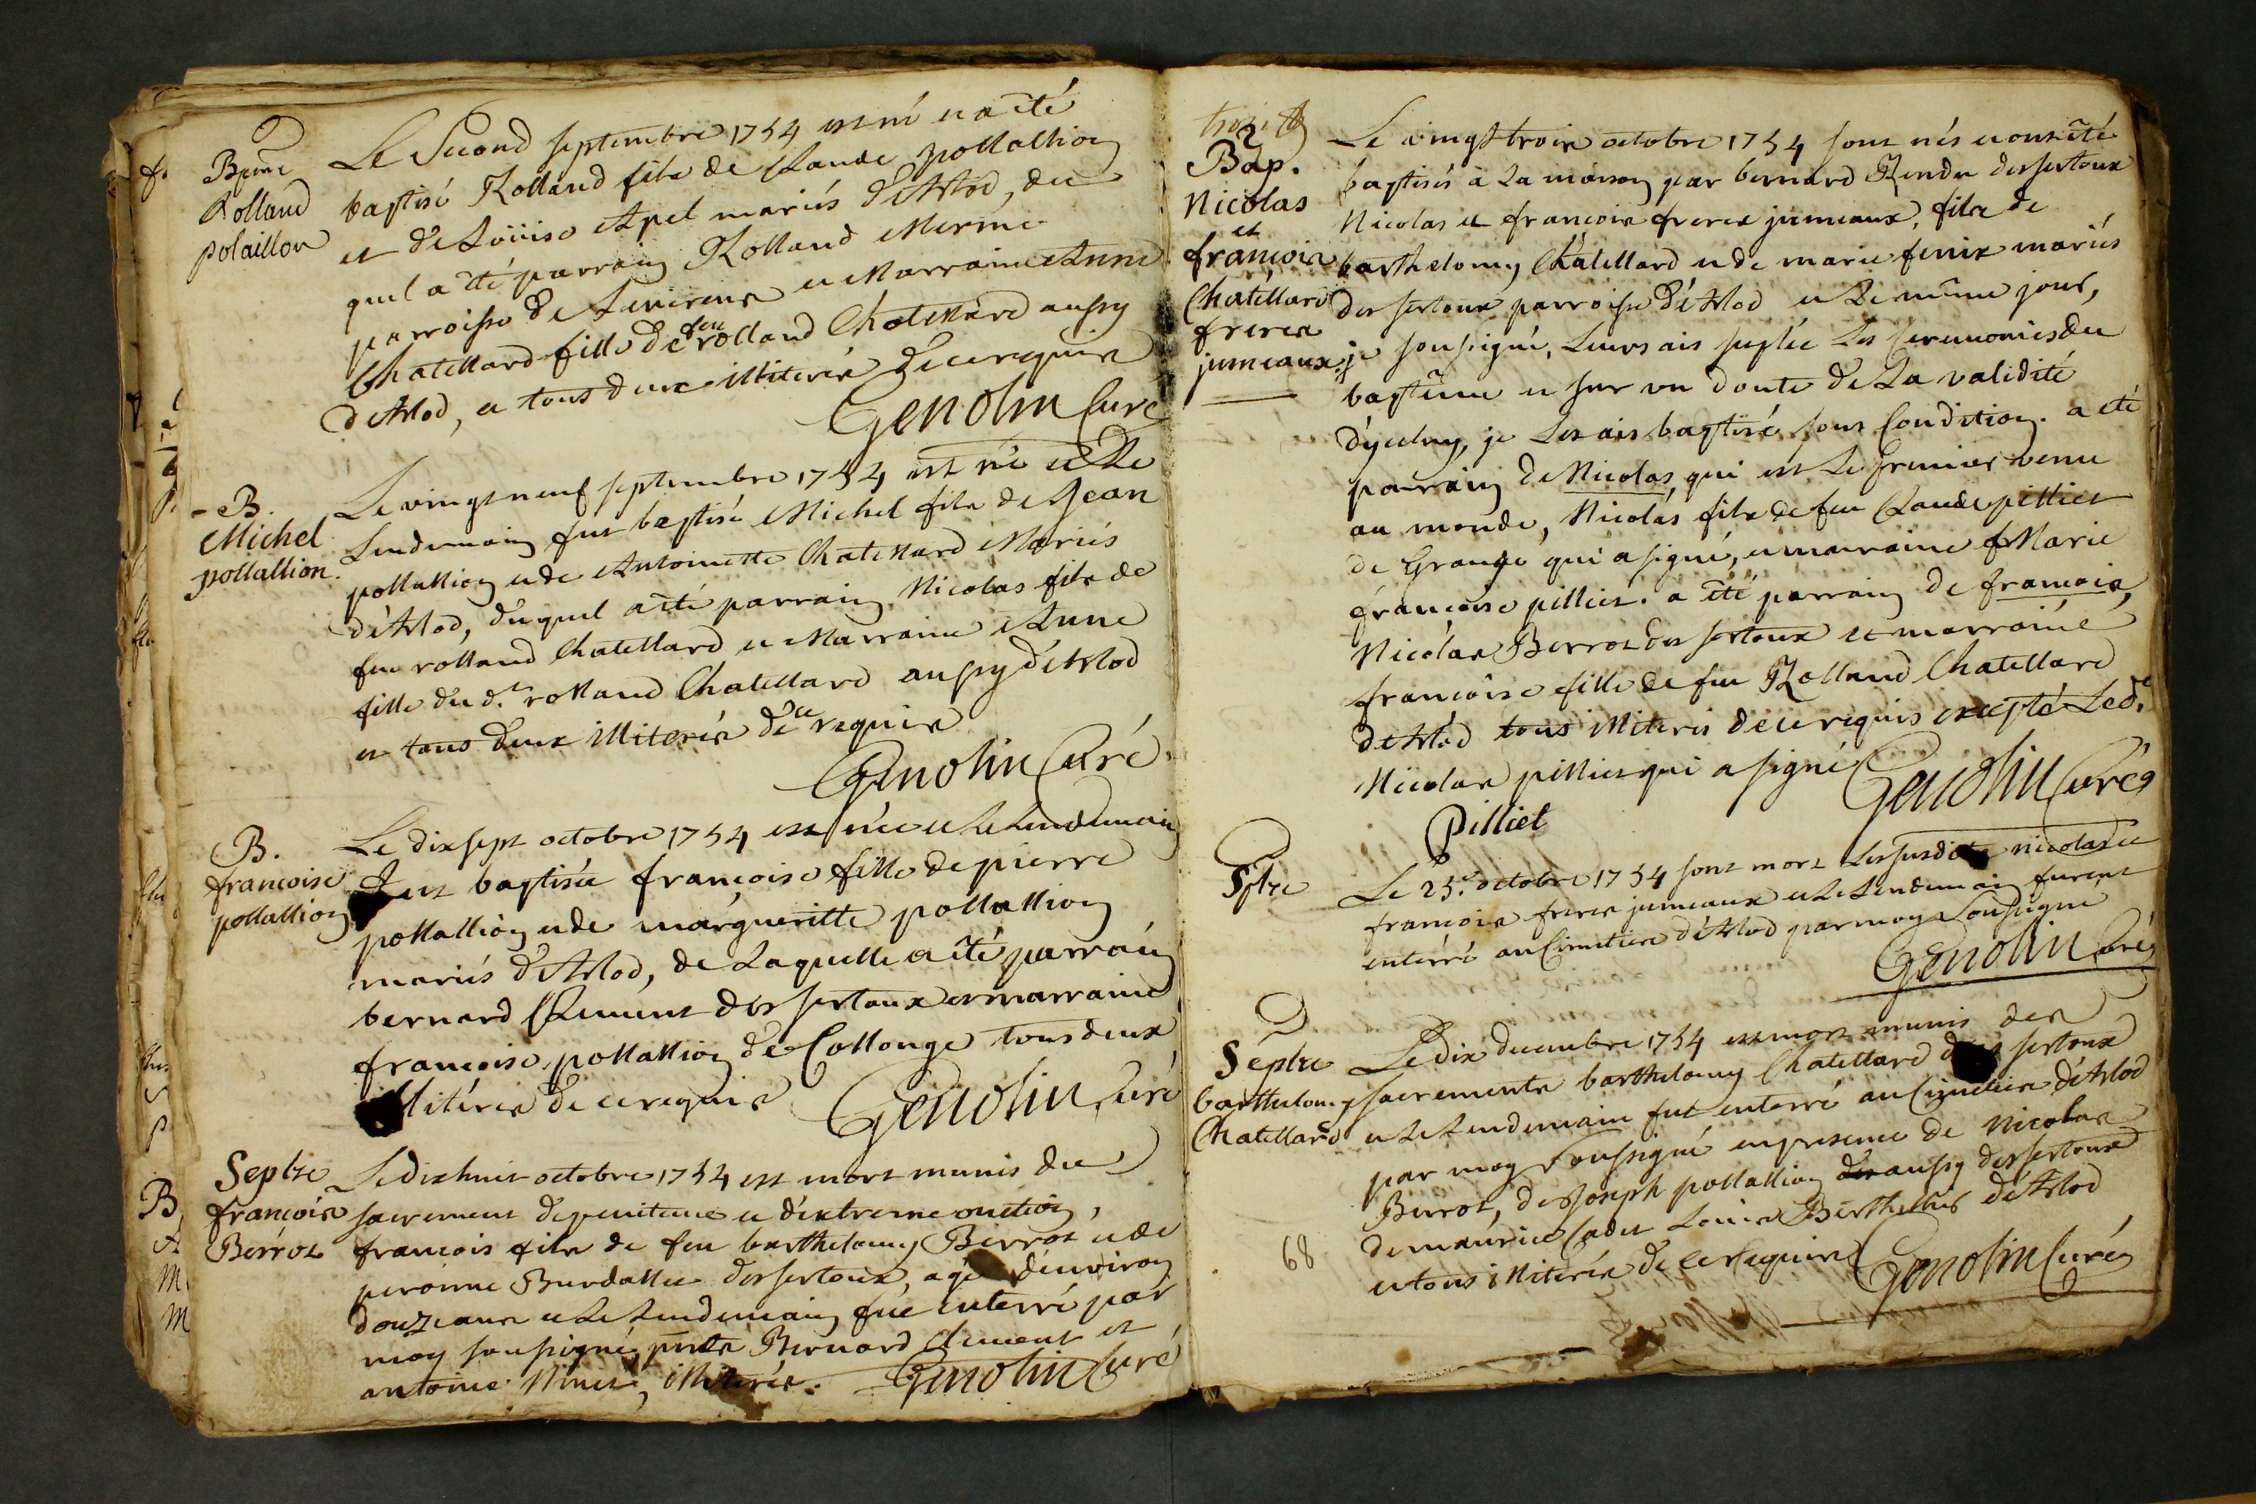 Bpme
Rolland
polaillon
Le Second septembre 1754 est né et a été
baptisé Rolland fils de Claude pollallion
et de Loüise Apel mariés d'Arlod, du
quel a été parrain Rolland Mermé
parroisse de et Marraine Anne
Chatellard fille de feu rolland Chatellard aussy
d'Arlod, et tous deux illiterés de ce requis
Genolin Curé
B.
Michel
pollallion.
Le vingt neuf septembre 1754 est né et le
Lendemain fut baptisé Michel fils de Jean
pollallion et de Antoinette Chatellard Mariés
d'Arlod, duquel a été parrain Nicolas fils de
feu rolland Chatellard et Marraine Anne
fille du d.t rolland Chatellard aussy d'Arlod
et tous deux illiterés de ce requis
Genolin Curé
B.
francoise
pollallion
Le dix sept octobre 1754 est née et le Lendemain
fut baptisée françoise fille de pierre
pollallion et de margueritte pollallion
mariés d'Arlod, de Laquelle a été parrain
bernard Clement des sertoux et marraine
francoise pollallion de Collonge tous deux
illitérés de ce requis Genolin Curé
Septre
françois
Berrot
Le dix huit octobre 1754 est mort munis du
sacrement de penitence et d'extreme onction,
francois fils de feu barthelomy Berrot et de
peronne Burdallet des sertoux, agé d'environ
douze ans et le Lendemain fut enterré par
moy soussigné, pnts Bernard clement et
antoine Minet, illiterés. Genolin Curé
Bap.
Nicolas
et
françois
Chatellard
freres
jumeaux.
Le vingt trois octobre 1754 sont nés et ont été
baptisés à La maison par bernard Rendu des sertoux
Nicolas et françois freres jumeaux, fils de
barthelomy Chatellard et de marie fenix mariés
des sertoux parroisse d'Arlod et le même jour,
je soussigné, Leurs ais suplée Les ceremonies du
baptême et sur un doute de La validité
d'yceluy, je Les ais baptisé sous Condition. a eté
parrain de Nicolas, qui est Le premier venu
au monde, Nicolas fils de feu Claude pilliet
de Grange qui a signé, et marraine Marie
françoise pilliet. a été parrain de francois,
Nicolas Berrot des sertoux et marraine
francoise fille de feu Rolland Chatellard
d'Arlod tous illiterés de ce requis excepté Led.t
Nicolas pilliet qui a signé Genolin Curé
Pilliet
Sptre
Le 25.e octobre 1754 sont mort Les susdits nicolas et
francois freres jumeaux et le Lendemain furent
enterré au Cimetiere d'Arlod par moy soussigné
Genolin Curé
Septre
barthelomy
Chatellard
Le dix decembre 1754 est mort munis des
sacrements barthelomy Chatellard des sertoux
et le Lendemain fut enterré au Cimetiere d'Arlod
par moy soussigné en presence de Nicolas
Berrot, de Joseph pollallion des aussy des sertoux
de maurice Cadet Louis Berthellet d'Arlod
et tous illiterés de ce requis Genolin Curé
68